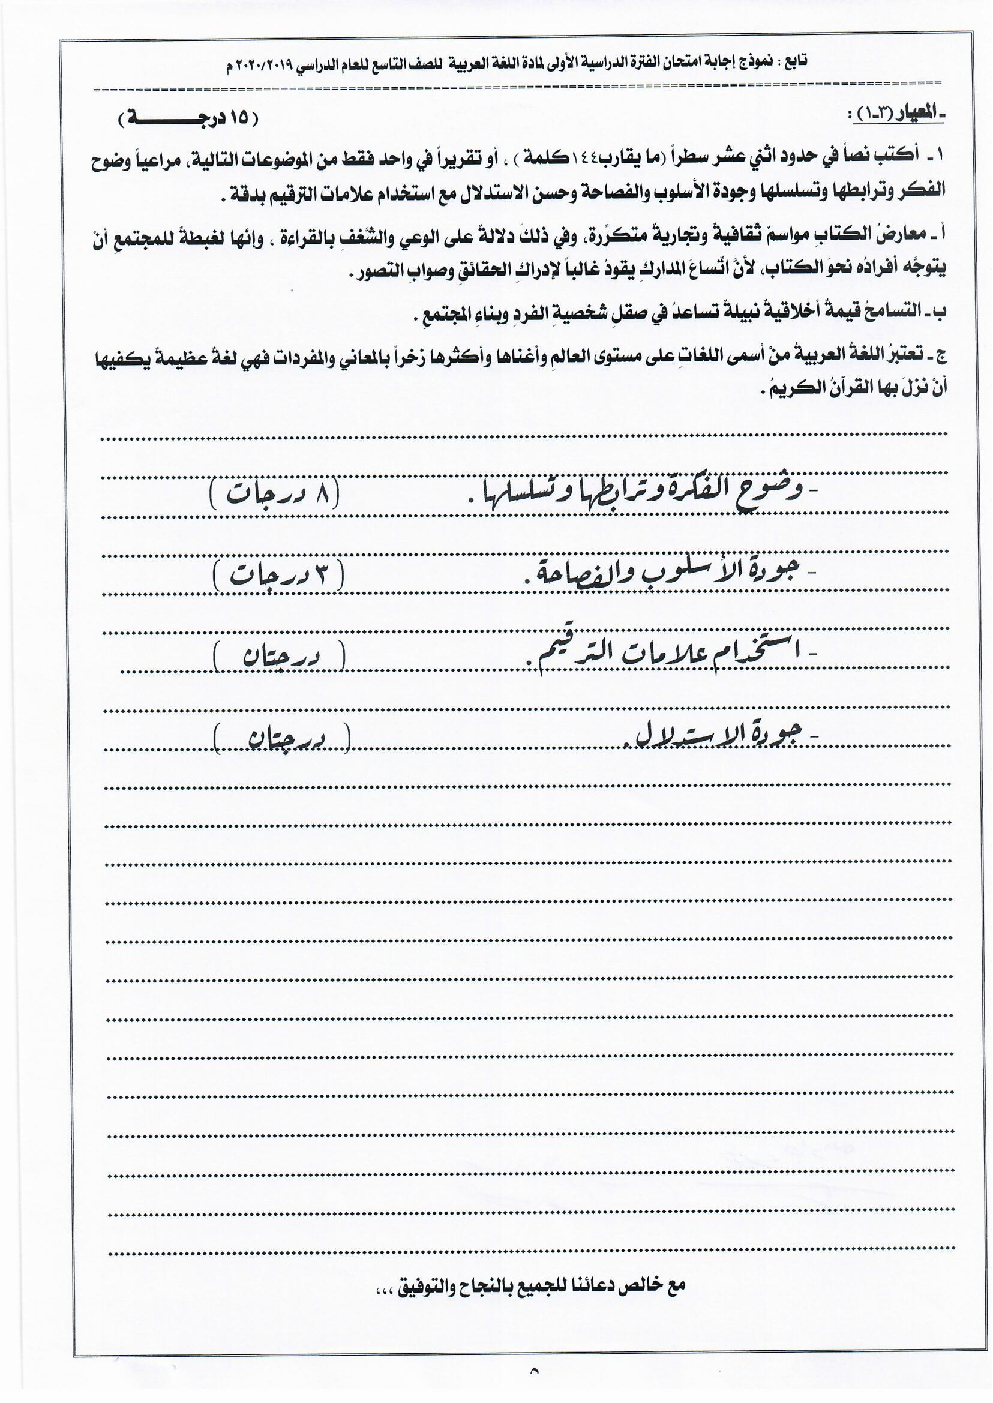 تابع : نموذج إجابة امتحان الفترة الدراسية الأولى لمادة اللغة العربية للصف التاسع للعام الدراسي ٢٠٢٠/٢٠١٩ م
ـ المعيار (٣ـ١) : (١٥ درجـــــــة)
١ ـ أكتب نصاً في حدود اثني عشر سطراً (ما يقارب ١٤٤ كلمة) ، أو تقريراً في واحد فقط من الموضوعات التالية، مراعياً وضوح
الفكر وترابطها وتسلسلها وجودة الأسلوب والفصاحة وحسن الاستدلال مع استخدام علامات الترقيم بدقة .
أ ـ معارضُ الكتابِ مواسمُ ثقافيةٌ وتجاريةٌ متكرّرة، وفي ذلكَ دلالةٌ على الوعي والشّغفِ بالقراءة ، وإنها لغبطةٌ للمجتمعِ أنْ
يتوجَّه أفرادُه نحوَ الكتاب، لأنّ اتّساعَ المدارك يقودُ غالباً لإدراكِ الحقائقِ وصوابِ التصور .
ب ـ التسامحُ قيمةٌ أخلاقيةٌ نبيلةٌ تساعدُ في صقلِ شخصيةِ الفردِ وبناءِ المجتمعِ .
ج ـ تعتبرُ اللغةُ العربيةُ منْ أسمى اللغاتِ على مستوى العالمِ وأغناها وأكثرها زخراً بالمعاني والمفردات فهي لغةٌ عظيمةٌ يكفيها
أنْ نزلَ بها القرآنُ الكريمُ .
- وضوح الفكرة وترابطها وتسلسلها . (٨ درجات)
- جودة الأسلوب والفصاحة . (٣ درجات)
- استخدام علامات الترقيم . (درجتان)
- جودة الاستدلال . (درجتان)
مع خالص دعائنا للجميع بالنجاح والتوفيق ،،،
٨